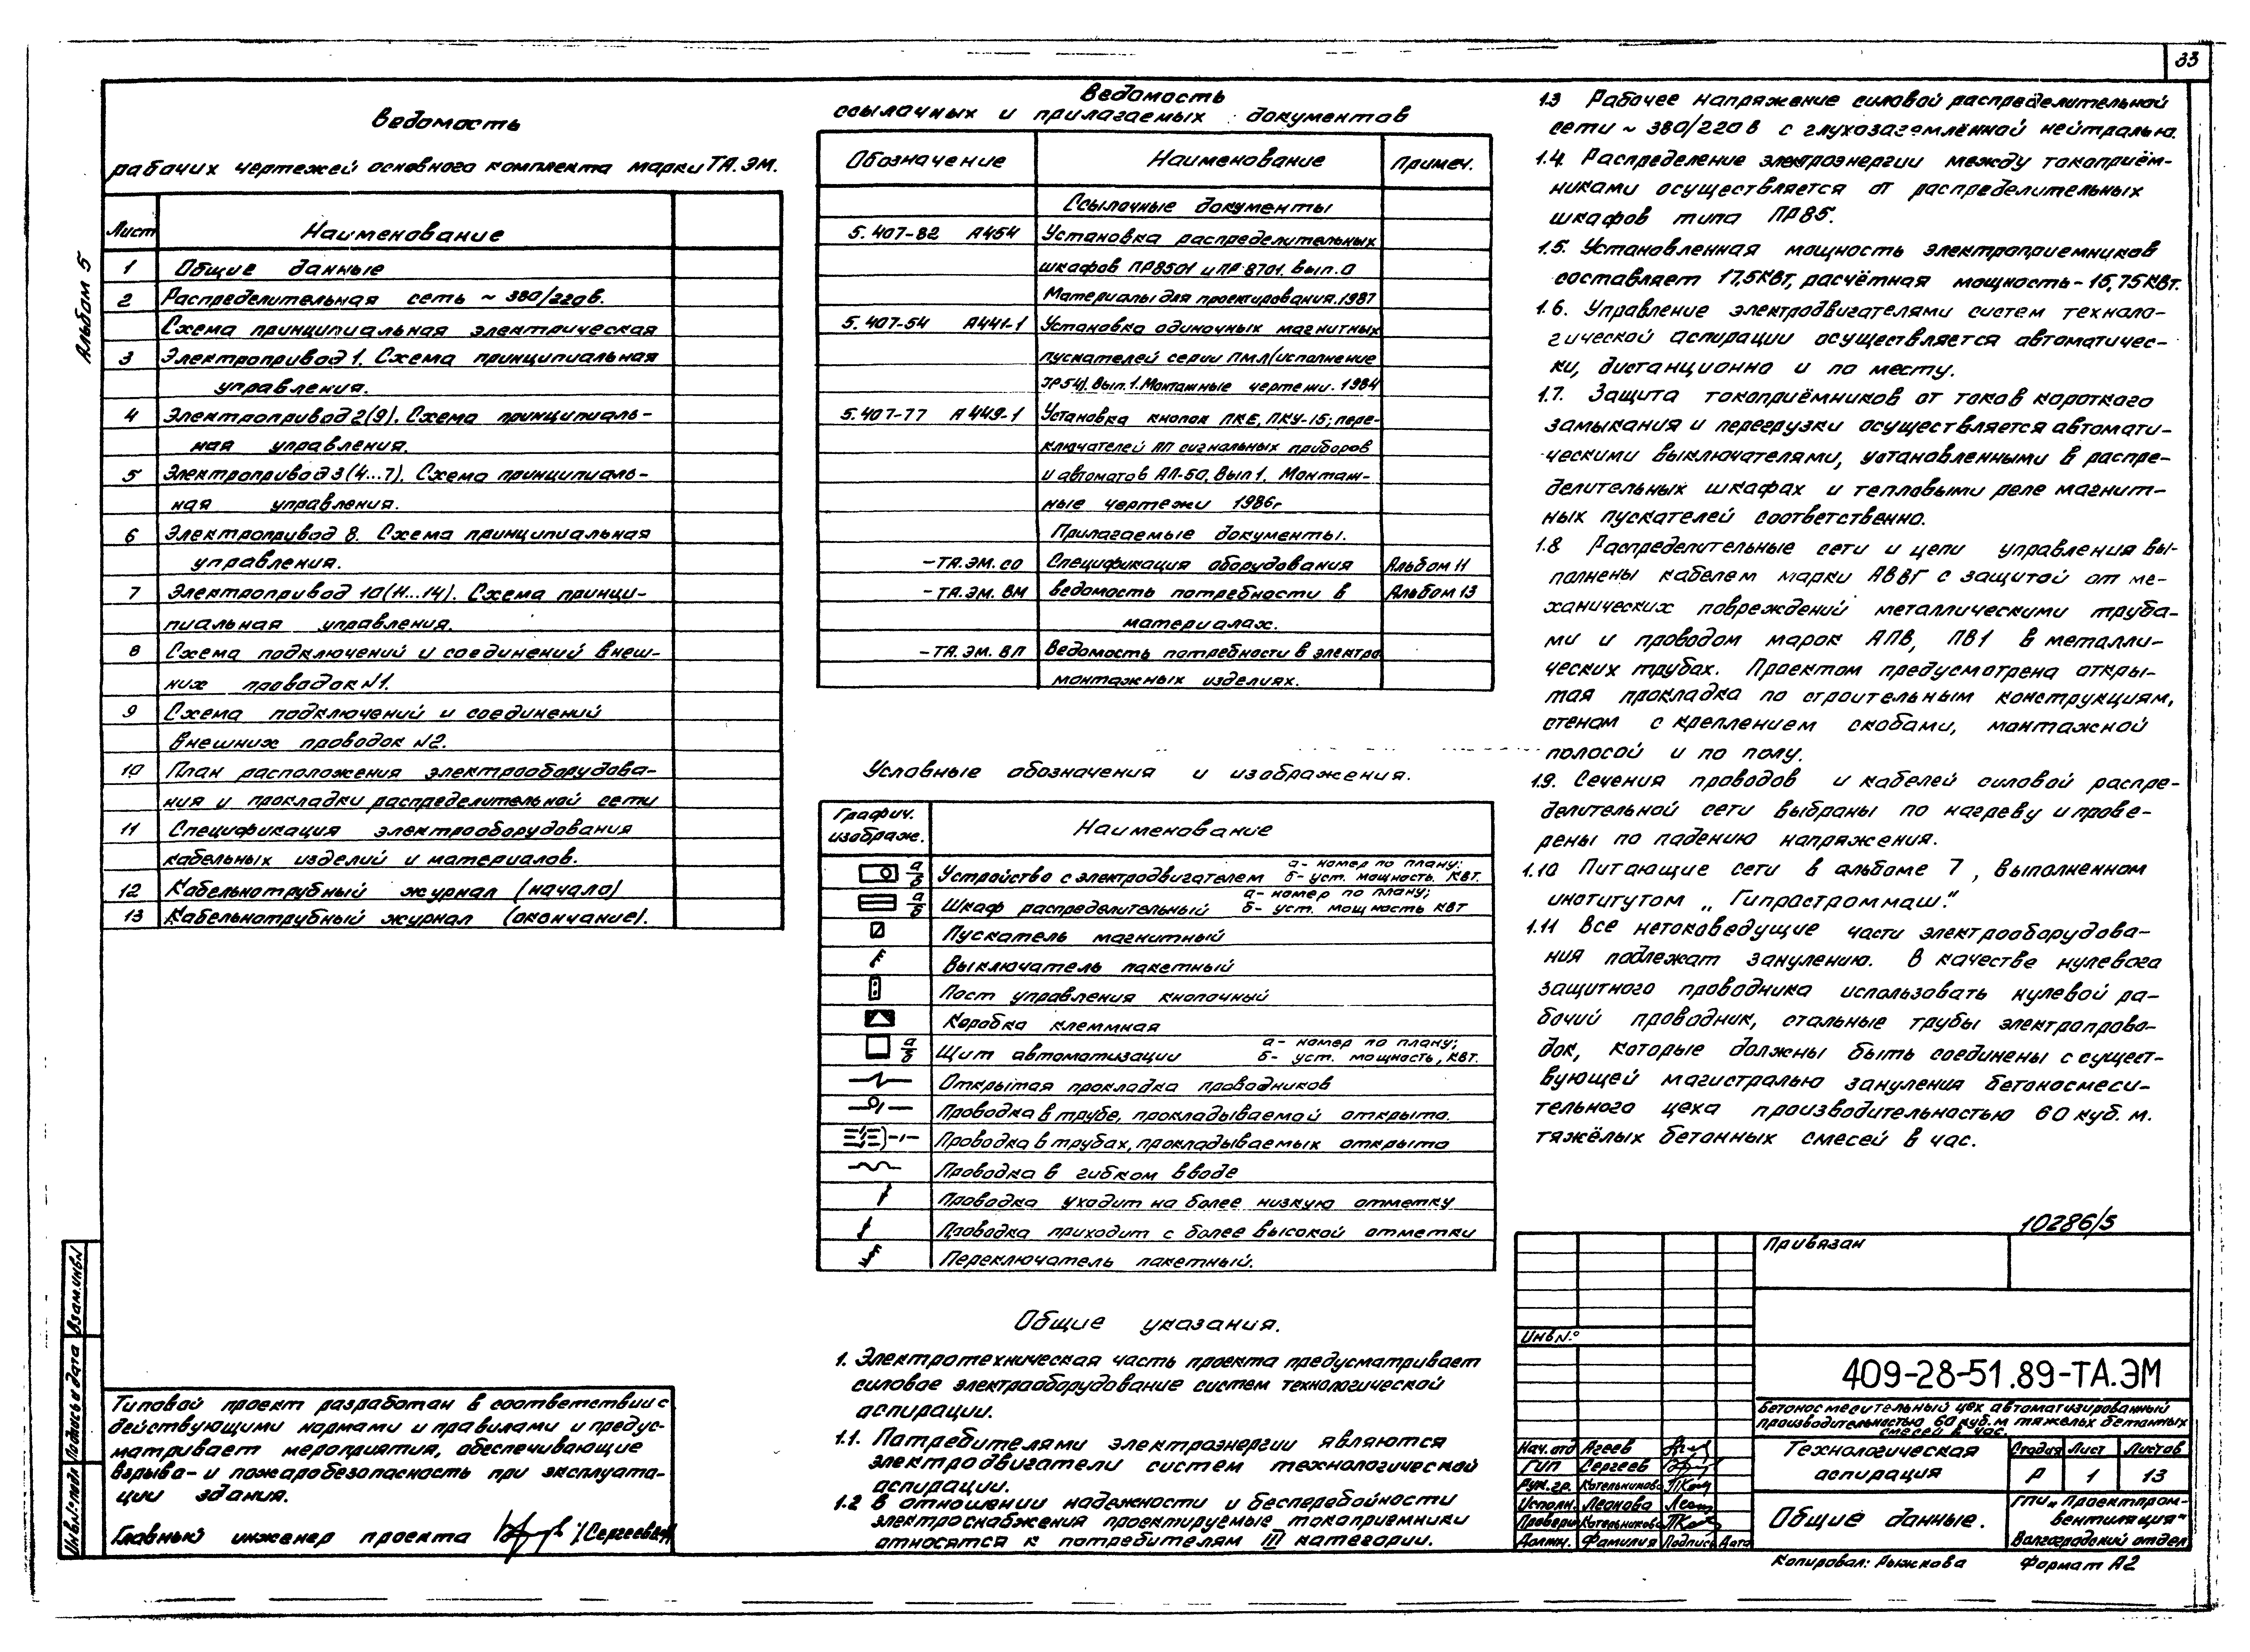 33
Альбом 5
Ведомость
рабочих чертежей основного комплекта марки ТА.ЭМ.
Лист Наименование
1 Общие данные
2 Распределительная сеть ~ 380/220в.
Схема принципиальная электрическая
3 Электропривод 1. Схема принципиальная
управления.
4 Электропривод 2(9). Схема принципиаль-
ная управления.
5 Электропривод 3(4...7). Схема принципиаль-
ная управления.
6 Электропривод 8. Схема принципиальная
управления.
7 Электропривод 10(11...14). Схема принци-
пиальная управления.
8 Схема подключений и соединений внеш-
них проводок N1.
9 Схема подключений и соединений
внешних проводок N2.
10 План расположения электрооборудова-
ния и прокладки распределительной сети
11 Спецификация электрооборудования
кабельных изделий и материалов.
12 Кабельнотрубный журнал (начало)
13 Кабельнотрубный журнал (окончание).
Типовой проект разработан в соответствии с
действующими нормами и правилами и предус-
матривает мероприятия, обеспечивающие
взрыво- и пожаробезопасность при эксплуата-
ции здания.
Главный инженер проекта /Сергеев
Взам.инв.N
Подпись и дата
Инв.N°подл
Ведомость
ссылочных и прилагаемых документов
Обозначение Наименование Примеч.
Ссылочные документы
5.407-82 А454 Установка распределительных
шкафов ПР8501 и ПР 8701. Вып.0
Материалы для проектирования.1987
5.407-54 А441-1 Установка одиночных магнитных
пускателей серии ПМЛ(исполнение
JP54). Вып.1. Монтажные чертежи. 1984
5.407-77 А449-1 Установка кнопок ПКЕ, ПКУ-15; пере-
ключателей ПП сигнальных приборов
и автоматов АП-50, Вып 1. Монтаж-
ные чертежи 1986г
Прилагаемые документы.
-ТА.ЭМ.СО Спецификация оборудования Альбом 11
-ТА.ЭМ. ВМ Ведомость потребности в Альбом 13
материалах.
-ТА.ЭМ. ВП Ведомость потребности в электро
монтажных изделиях.
Условные обозначения и изображения.
Графич.
изображ. Наименование
а/б Устройство с электродвигателем а- номер по плану; б- уст. мощность. квт.
а/б Шкаф распределительный а- номер по плану; б- уст. мощность квт
Пускатель магнитный
Выключатель пакетный
Пост управления кнопочный
Коробка клеммная
а/б Щит автоматизации а- номер по плану; б- уст. мощность, квт.
Открытая прокладка проводников
Проводка в трубе, прокладываемой открыто.
Проводка в трубах, прокладываемых открыто
Проводка в гибком вводе
Проводка уходит на более низкую отметку
Проводка приходит с более высокой отметки
Переключатель пакетный.
Общие указания.
1. Электротехническая часть проекта предусматривает
силовое электрооборудование систем технологической
аспирации.
1.1. Потребителями электроэнергии являются
электродвигатели систем технологической
аспирации.
1.2 В отношении надежности и бесперебойности
электроснабжения проектируемые токоприемники
относятся к потребителям III категории.
1.3 Рабочее напряжение силовой распределительной
сети ~ 380/220 в с глухозаземлённой нейтралью.
1.4. Распределение электроэнергии между токоприём-
никами осуществляется от распределительных
шкафов типа ПР85.
1.5. Установленная мощность электроприемников
составляет 17,5 КВт, расчётная мощность - 15,75 КВт.
1.6. Управление электродвигателями систем техноло-
гической аспирации осуществляется автоматичес-
ки, дистанционно и по месту.
1.7. Защита токоприёмников от токов короткого
замыкания и перегрузки осуществляется автомати-
ческими выключателями, установленными в распре-
делительных шкафах и тепловыми реле магнит-
ных пускателей соответственно.
1.8 Распределительные сети и цепи управления вы-
полнены кабелем марки АВВГ с защитой от ме-
ханических повреждений металлическими труба-
ми и проводом марок АПВ, ПВ1 в металли-
ческих трубах. Проектом предусмотрена откры-
тая прокладка по строительным конструкциям,
стенам с креплением скобами, монтажной
полосой и по полу.
1.9. Сечения проводов и кабелей силовой распре-
делительной сети выбраны по нагреву и прове-
рены по падению напряжения.
1.10 Питающие сети в альбоме 7, выполненном
институтом „Гипростроммаш."
1.11 Все нетоковедущие части электрооборудова-
ния подлежат занулению. В качестве нулевого
защитного проводника использовать нулевой ра-
бочий проводник, стальные трубы электропрово-
док, которые должны быть соединены с сущест-
вующей магистралью зануления бетоносмеси-
тельного цеха производительностью 60 куб.м.
тяжёлых бетонных смесей в час.
10286/5
Привязан
Инв N.°
409-28-51.89-ТА.ЭМ
Бетоносмесительный цех автоматизированный
производительностью 60 куб.м тяжелых бетонных
смесей в час.
Нач.отд Агеев
ГИП Сергеев
Рук.гр. Котельникова
Исполн. Леонова
Провери Котельникова
Должн. Фамилия Подпись Дата
Технологическая
аспирация
Стадия Лист Листов
Р 1 13
Общие данные.
ГПИ „Проектпром-
вентиляция"
Волгоградский отдел
Копировал: Рыжкова Формат А2